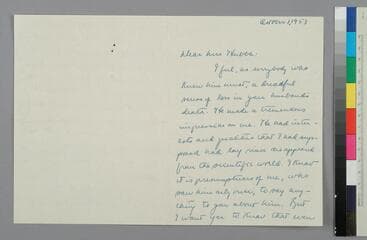 Dear Mrs. Hubble:
I feel, as everybody who
knew him must, a dreadful
sense of loss in your husband's
death. He made a tremendous
impression on me. He had inter-
ests and qualities that I had sup-
posed had long since disappeared
from the scientific world. I know
it is presumptuous of me, who
saw him only once, to say any-
thing to you about him. But
I want you to know that even